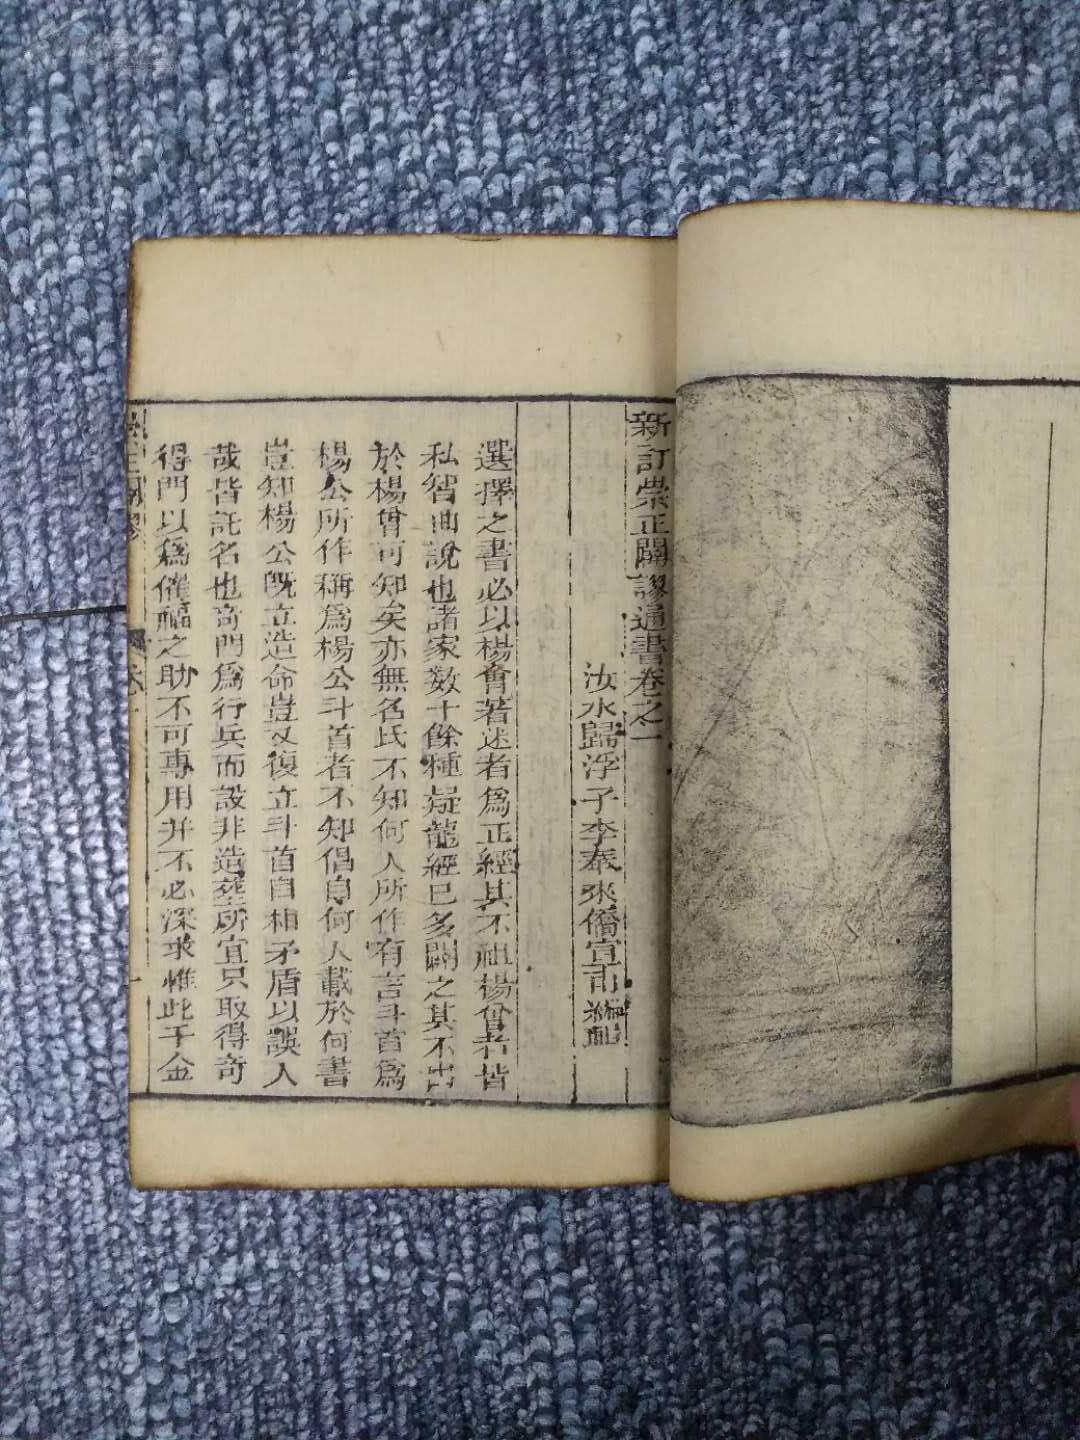 新訂崇正闢謬通書卷之一
汝水歸浮子李奉來僑宣甫編
選擇之書必以楊曾著述者爲正經其不祖楊曾者皆
私智曲說也諸家數十餘種疑龍經已多闢之其不出
於楊曾可知矣亦無名氏不知何人所作有言斗首爲
楊公所作稱爲楊公斗首者不知倡自何人載於何書
豈知楊公旣立造命豈又復立斗首自相矛盾以誤人
哉皆託名也奇門爲行兵而設非造塟所宜只取得奇
得門以爲催福之助不可專用并不必深求惟此千金
崇正闢謬
卷一
一